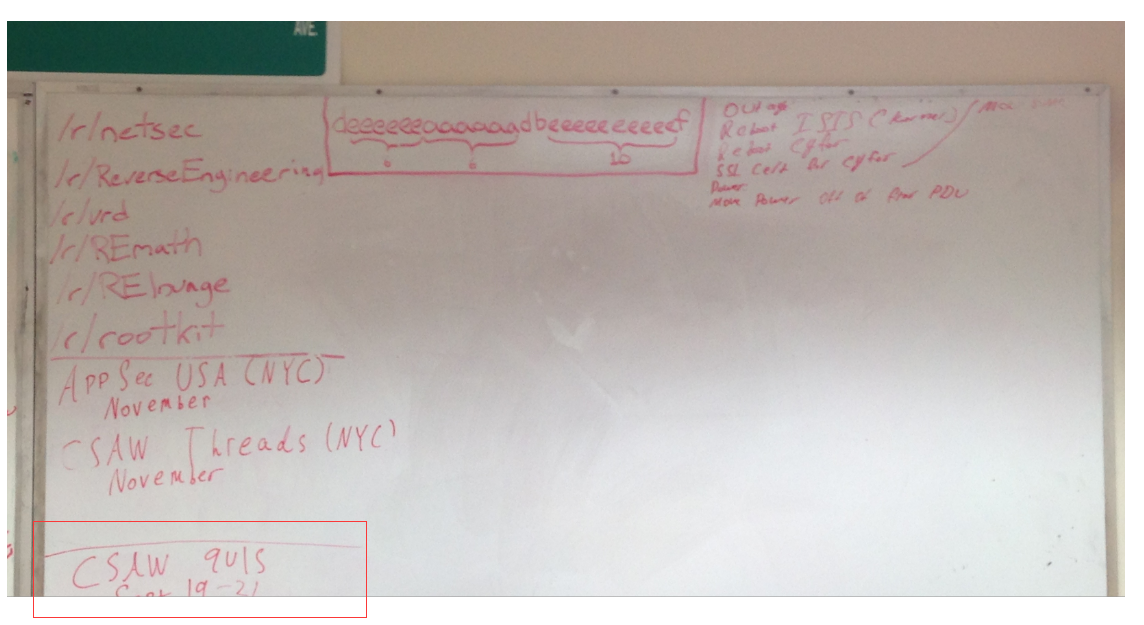 AVE.
/r/netsec
/r/ReverseEngineering
/r/vrd
/r/REmath
/r/RElounge
/r/rootkit
AppSec USA (NYC)
November
CSAW Threads (NYC)
November
CSAW quls
Sept 19-21
deeeeeeaaaaaadbeeeeeeeeeef
6 6 10
Outage
Reboot ISIS (kernel)
Reboot Cyfor
SSL Cert for Cyfor
Power:
Move Power off of PDU